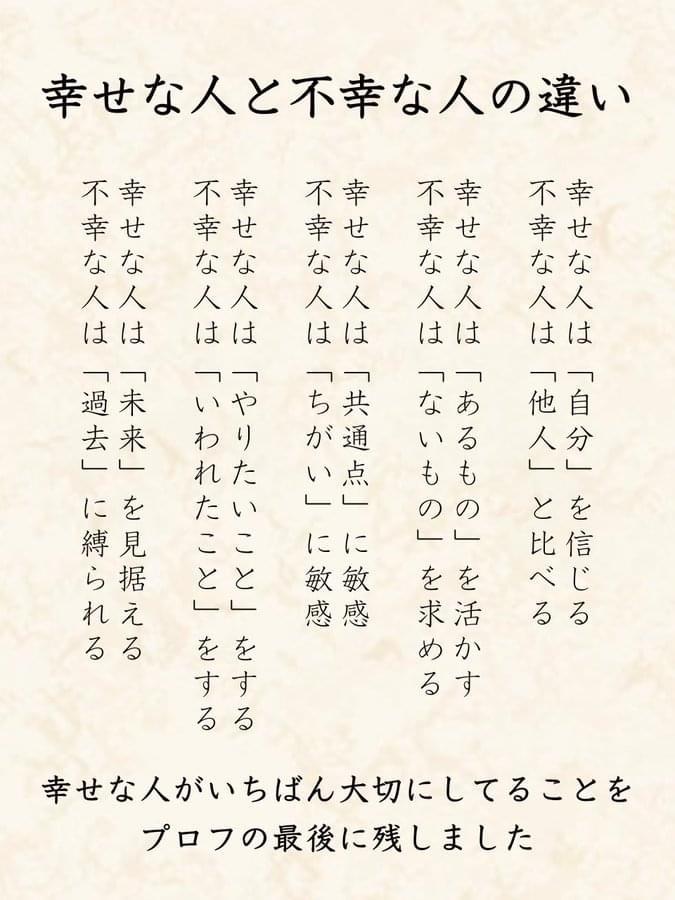 幸せな人と不幸な人の違い
幸せな人は「自分」を信じる
不幸な人は「他人」と比べる
幸せな人は「あるもの」を活かす
不幸な人は「ないもの」を求める
幸せな人は「共通点」に敏感
不幸な人は「ちがい」に敏感
幸せな人は「やりたいこと」をする
不幸な人は「いわれたこと」をする
幸せな人は「未来」を見据える
不幸な人は「過去」に縛られる
幸せな人がいちばん大切にしてることを
プロフの最後に残しました